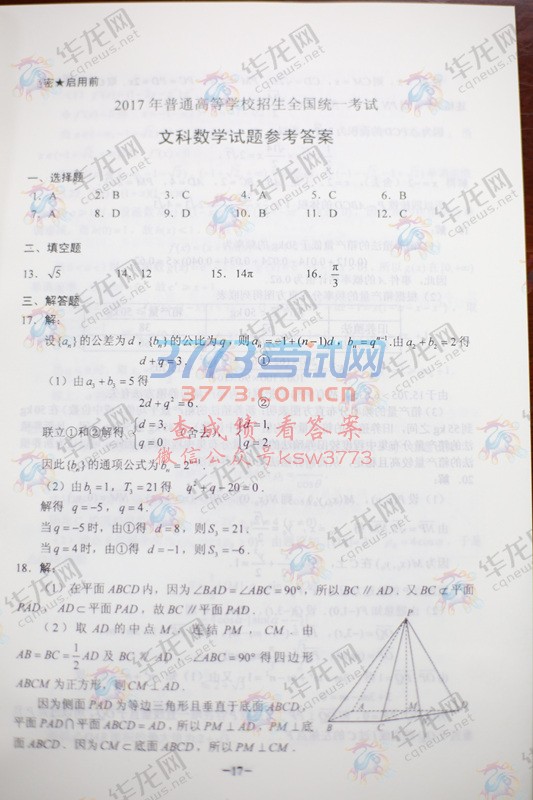 密★启用前
2017年普通高等学校招生全国统一考试
文科数学试题参考答案
一、选择题
1. A 2. B 3. C 4. A 5. C 6. B
7. A 8. D 9. D 10. B 11. D 12. C
二、填空题
13. √5 14. 12 15. 14π 16. π/3
三、解答题
17. 解:
设{aₙ}的公差为d,{bₙ}的公比为q,则aₙ=-1+(n-1)d,bₙ=qⁿ⁻¹.由a₂+b₂=2得
d+q=3. ①
(1)由a₃+b₃=5得
2d+q²=6. ②
联立①和②解得{d=3, q=0 (舍去), {d=1, q=2.
因此{bₙ}的通项公式为bₙ=2ⁿ⁻¹.
(2)由b₁=1,T₃=21得 q²+q-20=0.
解得 q=-5,q=4.
当q=-5时,由①得 d=8,则S₃=21.
当q=4时,由①得 d=-1,则S₃=-6.
18. 解:
(1)在平面ABCD内,因为∠BAD=∠ABC=90°,所以BC∥AD.又BC⊄平面
PAD,AD⊂平面PAD,故BC∥平面PAD.
(2)取AD的中点M,连结PM,CM.由
AB=BC=1/2 AD及BC∥AD,∠ABC=90°得四边形
ABCM为正方形,则CM⊥AD.
因为侧面PAD为等边三角形且垂直于底面ABCD,
平面PAD∩平面ABCD=AD,所以PM⊥AD,PM⊥底
面ABCD.因为CM⊂底面ABCD,所以PM⊥CM.
P
A
M
D
B
-17-
3773考试网
3773.com.cn
查成绩 看答案
微信公众号ksw3773
华龙网
cqnews.net